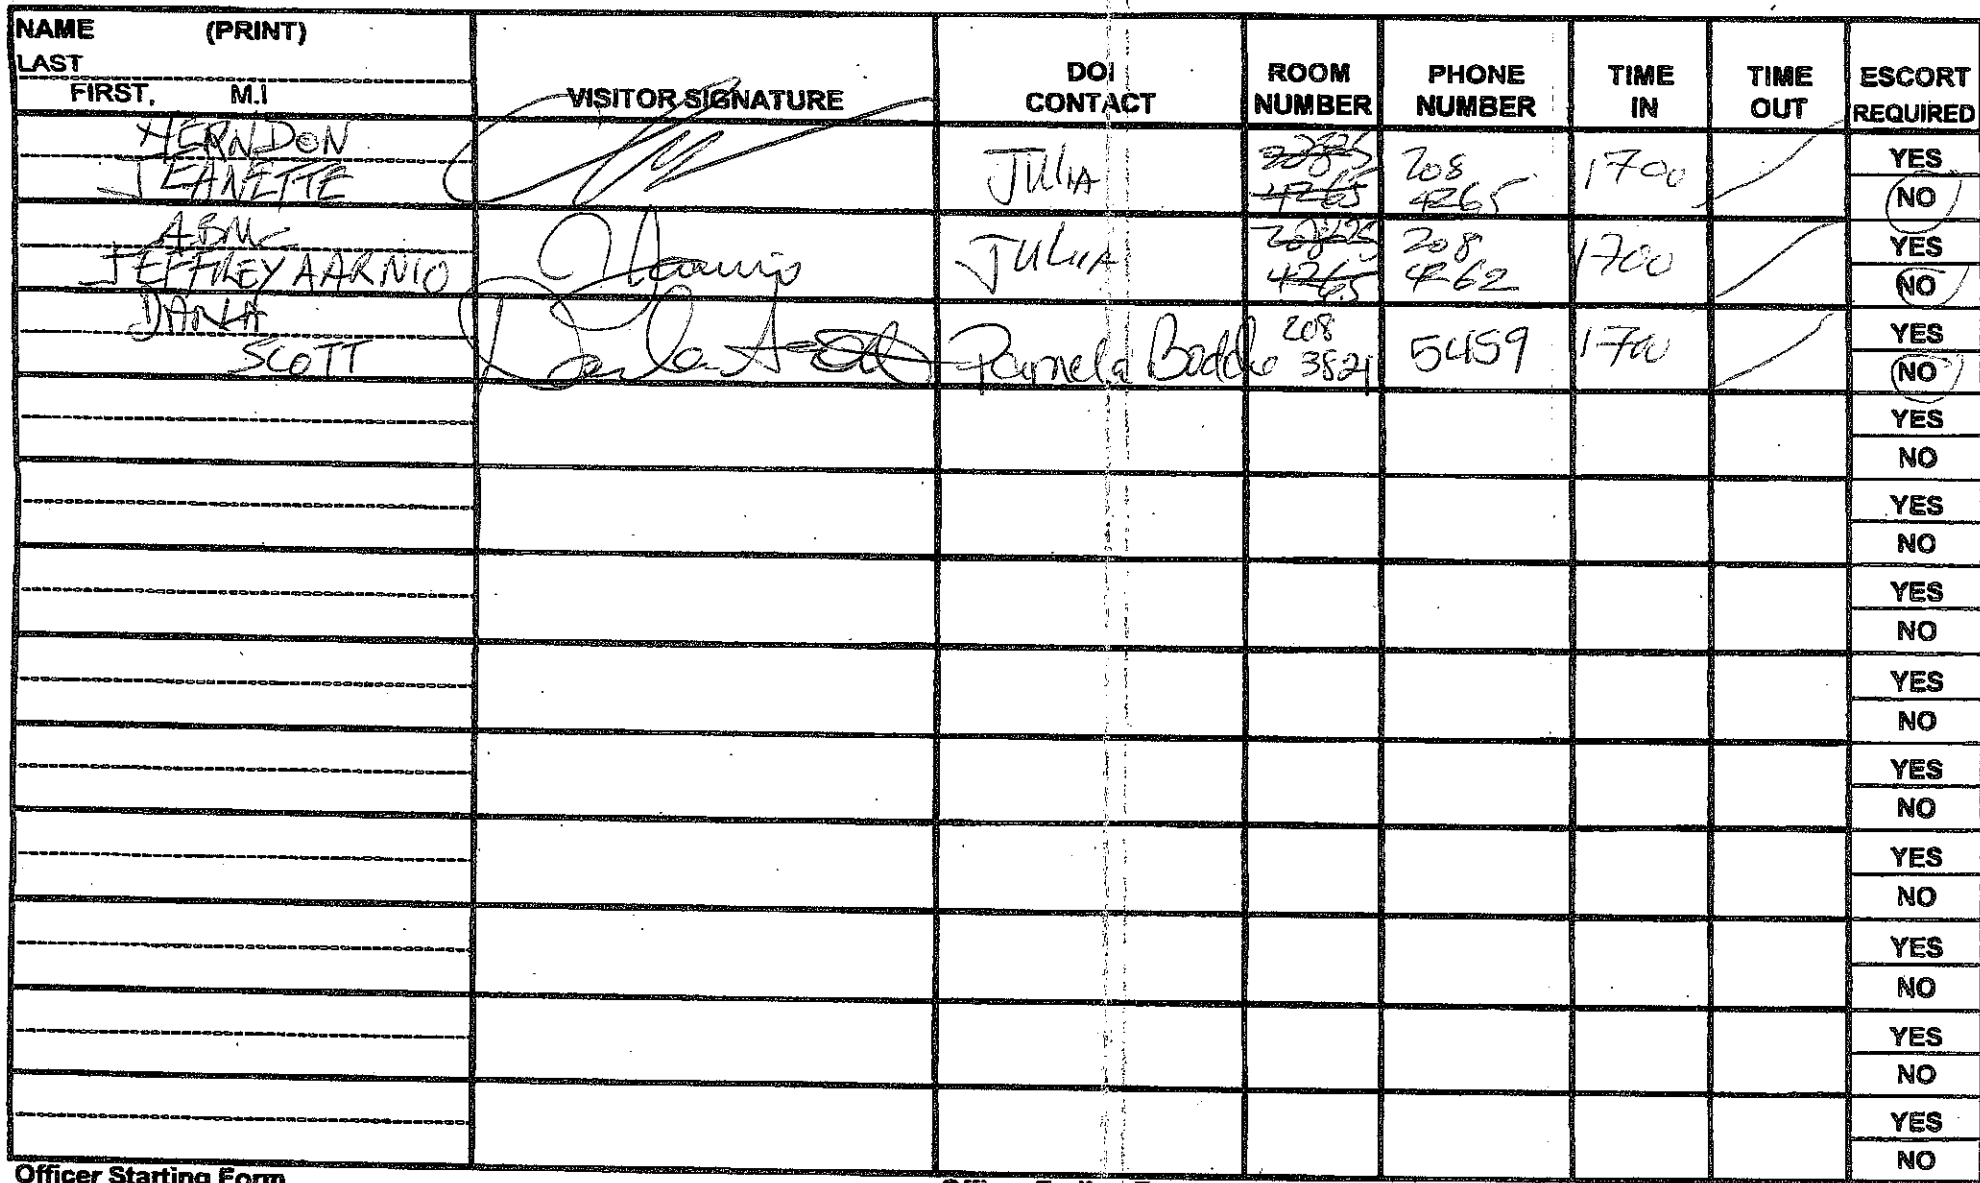 NAME (PRINT)
LAST
FIRST, M.I
VISITOR SIGNATURE
DOI
CONTACT
ROOM
NUMBER
PHONE
NUMBER
TIME
IN
TIME
OUT
ESCORT
REQUIRED
HERNDON
JEANETTE
JULIA
4265
208
4265
1700
YES
NO
ABMC
JEFFREY AARNIO
JULIA
4265
208
4262
1700
YES
NO
DARLA
SCOTT
Darla Scott
Pamela
208
3824
5459
1700
YES
NO
YES
NO
YES
NO
YES
NO
YES
NO
YES
NO
YES
NO
YES
NO
YES
NO
YES
NO
Officer Starting Form